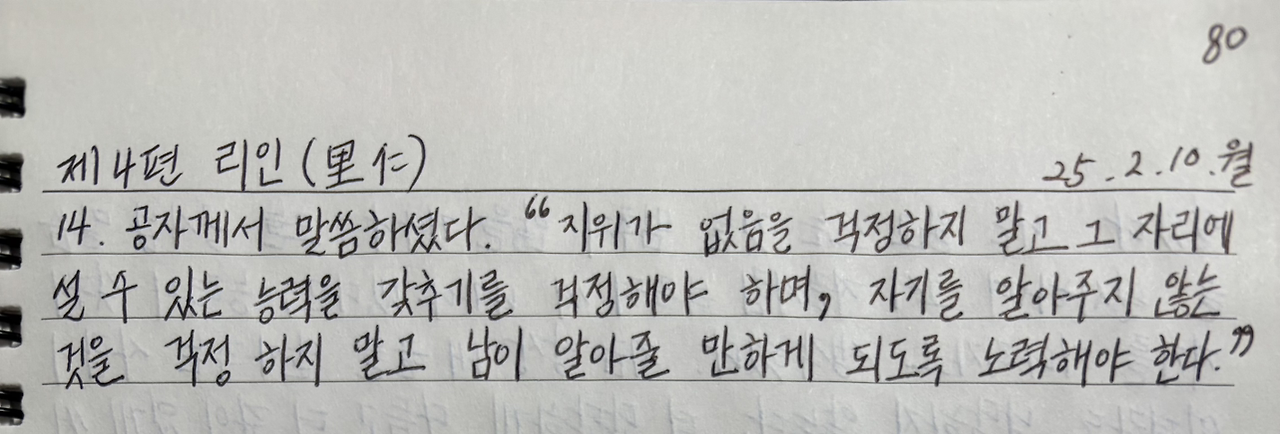 80
제4편 리인(里仁) 25.2.10.월
14. 공자께서 말씀하셨다. “지위가 없음을 걱정하지 말고 그 자리에
설 수 있는 능력을 갖추기를 걱정해야 하며, 자기를 알아주지 않는
것을 걱정 하지 말고 남이 알아줄 만하게 되도록 노력해야 한다.”